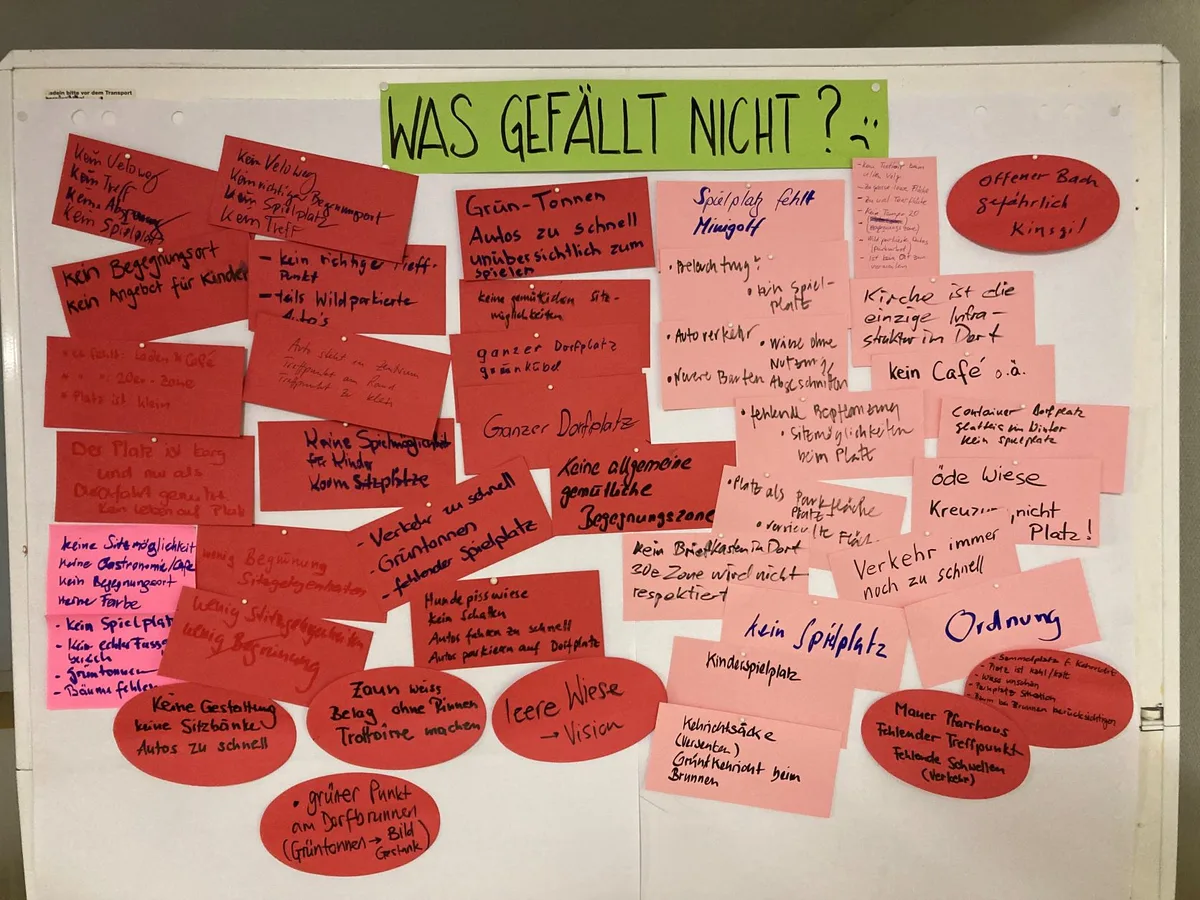 adeln bitte vor dem Transport
WAS GEFÄLLT NICHT? :(
Kein Veloweg
Kein Treff
Kein Spielplatz
Kein Veloweg
Kein richtiger Begegnungsort
kein Spielplatz
Kein Treff
kein Begegnungsort
kein Angebot für Kinder
- kein richtiger Treff-
Punkt
- teils Wildparkierte
Auto's
• es fehlt: Laden & Café
20er-Zone
• Platz ist klein
Auto steht im Zentrum
Treffpunkt am Rand
Treffpunkt zu klein
Der Platz ist karg
und nur als
Durchfahrt genutzt
kein Leben auf Platz
Keine Spielmöglichkeit
für Kinder
Kaum Sitzplätze
keine Sitzmöglichkeit
keine Gastronomie/Café
kein Begegnungsort
keine Farbe
- kein Spielplatz
- Kein echter Fuss
- Grüntonnen
- Bäume fehlen
wenig Begrünung
Sitzgelegenheiten
wenig Sitzgelegenheiten
wenig Begrünung
Grün-Tonnen
Autos zu schnell
unübersichtlich zum
spielen
keine gemütlichen Sitz-
möglichkeiten
ganzer Dorfplatz
grünkübel
Ganzer Dorfplatz
Keine allgemeine
gemütliche
Begegnungszone
- Verkehr zu schnell
- Grüntonnen
- fehlender Spielplatz
Hunde pisswiese
kein Schatten
Autos fahren zu schnell
Autos parkieren auf Dorfplatz
Keine Gestaltung
keine Sitzbänke
Autos zu schnell
Zaun weiss
Belag ohne Rinnen
Trottoire machen
leere Wiese
→ Vision
• grüner Punkt
am Dorfbrunnen
(Grüntonnen → Bild
Gestank)
Spielplatz fehlt
Minigolf
• Beleuchtung?
• kein Spiel-
platz
• Autoverkehr
• wäre ohne
Nutzung
• Neuere Bauten
Abgeschnitten
• fehlende Bepflanzung
• Sitzmöglichkeiten
beim Platz
• Platz als Parkfläche
Platz
kein Briefkasten in Dorf
30e Zone wird nicht
respektiert
kein Spielplatz
Kinderspielplatz
Kehrichtsäcke
(Versenken)
Grüntkehricht beim
Brunnen
- Kein Tempo 20
(Begegnungszone)
- Ist kein Ort zum
verweilen
Offener Bach
gefährlich
Kinsgi!
Kirche ist die
einzige Infra-
struktur in Dorf
kein Café o.ä.
Container Dorfplatz
glatteis im Winter
kein spielplatz
öde Wiese
nicht
Platz!
Verkehr immer
noch zu schnell
Ordnung
- Sammelplatz f. Kehricht
- Platz ist kahl/kalt
- Wiese unschön
- Parkplatz Situation
- Baum bei Brunnen berücksichtigen
Mauer Pfarrhaus
Fehlender Treffpunkt
Fehlende Schwellen
(Verkehr)